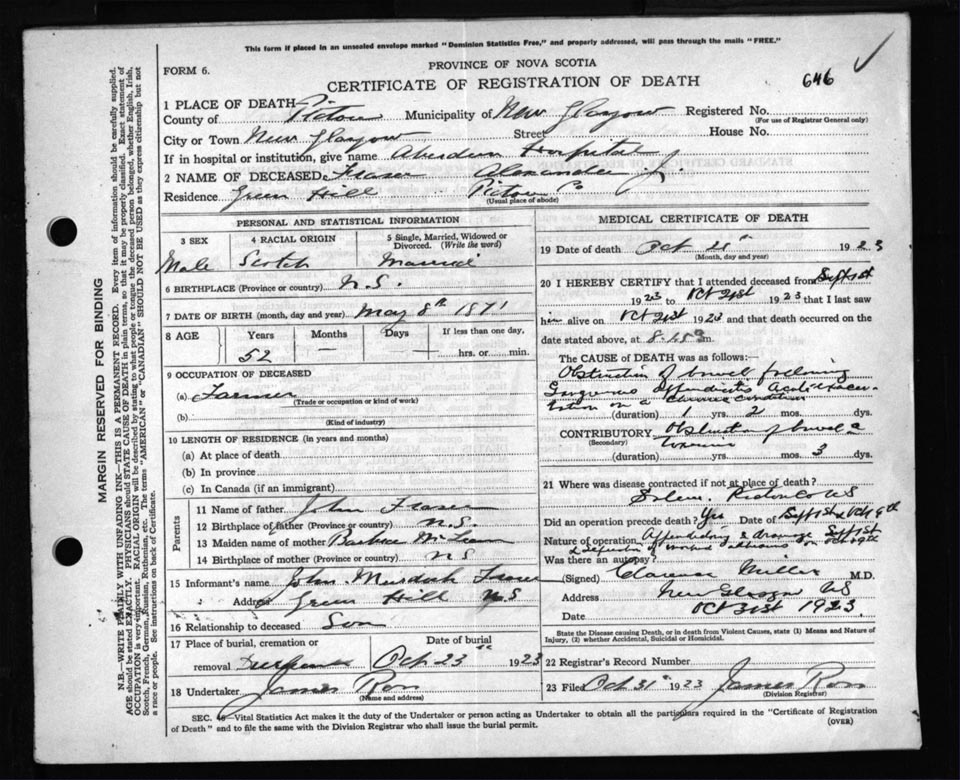 This form if placed in an unsealed envelope marked "Dominion Statistics Free," and properly addressed, will pass through the mails "FREE."
PROVINCE OF NOVA SCOTIA
FORM 6.
CERTIFICATE OF REGISTRATION OF DEATH
646
1 PLACE OF DEATH
County of Pictou Municipality of New Glasgow Registered No.
(For use of Registrar General only)
City or Town New Glasgow Street House No.
If in hospital or institution, give name Aberdeen Hospital
2 NAME OF DECEASED Fraser Alexander J.
Residence Green Hill Pictou Co
(Usual place of abode)
PERSONAL AND STATISTICAL INFORMATION
3 SEX 4 RACIAL ORIGIN 5 Single, Married, Widowed or Divorced. (Write the word)
Male Scotch Married
6 BIRTHPLACE (Province or country) N.S.
7 DATE OF BIRTH (month, day and year) May 8th 1871
8 AGE Years Months Days If less than one day,
52 — — hrs. or min.
9 OCCUPATION OF DECEASED
(a) Farmer
(Trade or occupation or kind of work)
(b)
(Kind of industry)
10 LENGTH OF RESIDENCE (in years and months)
(a) At place of death
(b) In province
(c) In Canada (if an immigrant)
Parents
11 Name of father John Fraser
12 Birthplace of father (Province or country) N.S.
13 Maiden name of mother Barbara McLean
14 Birthplace of mother (Province or country) NS
15 Informant's name John Murdoch Fraser
Address Green Hill NS
16 Relationship to deceased Son
17 Place of burial, cremation or Date of burial
removal Durham Oct 23 1923
18 Undertaker James Ross
(Name and address)
MEDICAL CERTIFICATE OF DEATH
19 Date of death Oct 21st 1923
(Month, day and year)
20 I HEREBY CERTIFY that I attended deceased from Sept 1st
1923 to Oct 21st 1923 that I last saw
him alive on Oct 21st 1923 and that death occurred on
date stated above, at 8.15 m.
The CAUSE of DEATH was as follows:—
Obstruction of bowel following
Gangrenous Appendicitis Acute exacer-
bation on a Chronic condition
(duration) 1 yrs. 2 mos. dys.
CONTRIBUTORY Obstruction of bowel &
(Secondary)
(duration) yrs. mos. 3 dys.
21 Where was disease contracted if not at place of death?
Salem. Pictou Co NS
Did an operation precede death? Yes Date of Sept 1st & Oct 19th
Nature of operation Appendectomy & Drainage Sept 1st
on Oct 19th
Was there an autopsy?
(Signed) Clarence Miller M.D.
Address New Glasgow NS
Date Oct 31st 1923
State the Disease causing Death, or in death from Violent Causes, state (1) Means and Nature of Injury, (2) whether Accidental, Suicidal or Homicidal.
22 Registrar's Record Number
23 Filed Oct 31st 1923 James Ross
(Division Registrar)
SEC. —Vital Statistics Act makes it the duty of the Undertaker or person acting as Undertaker to obtain all the particulars required in the "Certificate of Registration
of Death" and to file the same with the Division Registrar who shall issue the burial permit.
(OVER)
MARGIN RESERVED FOR BINDING
N.B.—WRITE PLAINLY WITH UNFADING INK—THIS IS A PERMANENT RECORD. Every item of information should be carefully supplied.
AGE should be stated EXACTLY. PHYSICIANS should STATE CAUSE OF DEATH in plain terms, so that it may be properly classified. Exact statement of
OCCUPATION is very important. RACIAL ORIGIN will be described by stating to what people or tongue the deceased person belonged, whether English, Irish,
Scotch, French, German, Russian, Ruthenian, etc. The terms "AMERICAN" or "CANADIAN" SHOULD NOT BE USED as they express citizenship but not
a race or people. See instructions on back of Certificate.